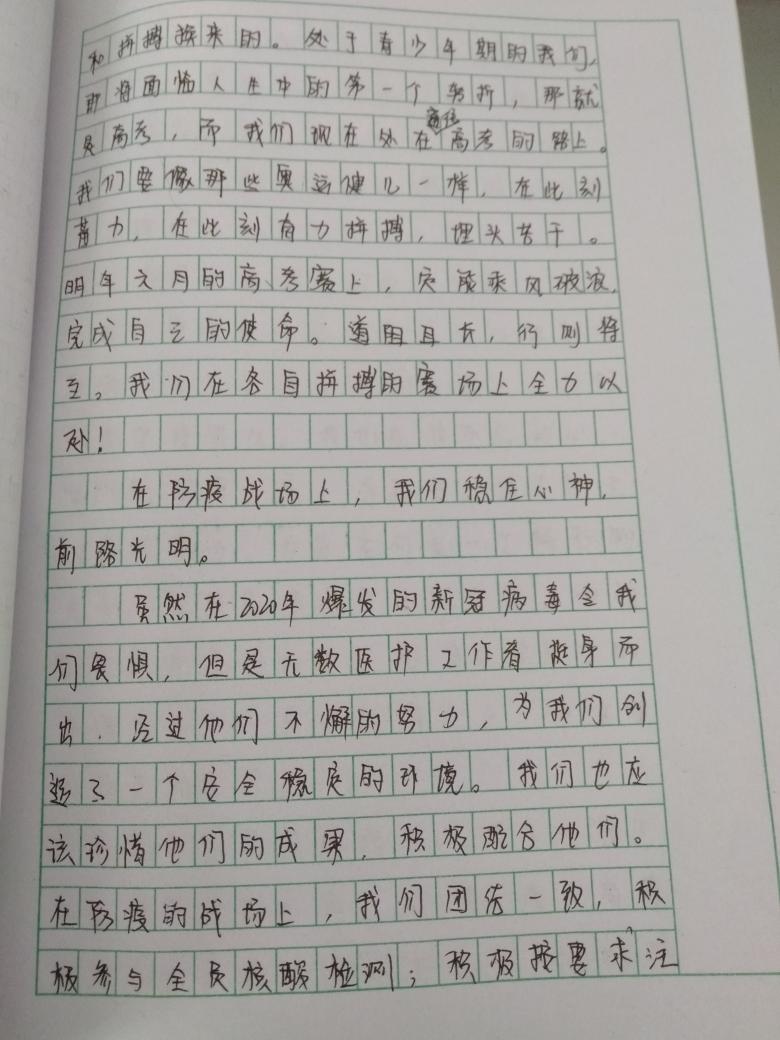 和拼搏换来的。处于青少年期的我们,
即将面临人生中的第一个转折,那就
是高考,而我们现在处在高考的路上。
我们要像那些奥运健儿一样,在此刻
蓄力,在此刻奋力拼搏,埋头苦干。
明年六月的高考赛上,定能乘风破浪,
完成自己的使命。道阻且长,行则将
至。我们在各自拼搏的赛场上全力以
赴!
在防疫战场上,我们稳住心神,
前路光明。
虽然在2020年爆发的新冠病毒令我
们畏惧,但是无数医护工作者挺身而
出.经过他们不懈的努力,为我们创
造了一个安全稳定的环境。我们也应
该珍惜他们的成果,积极配合他们。
在防疫的战场上,我们团结一致,积
极参与全员核酸检测;积极按要求注